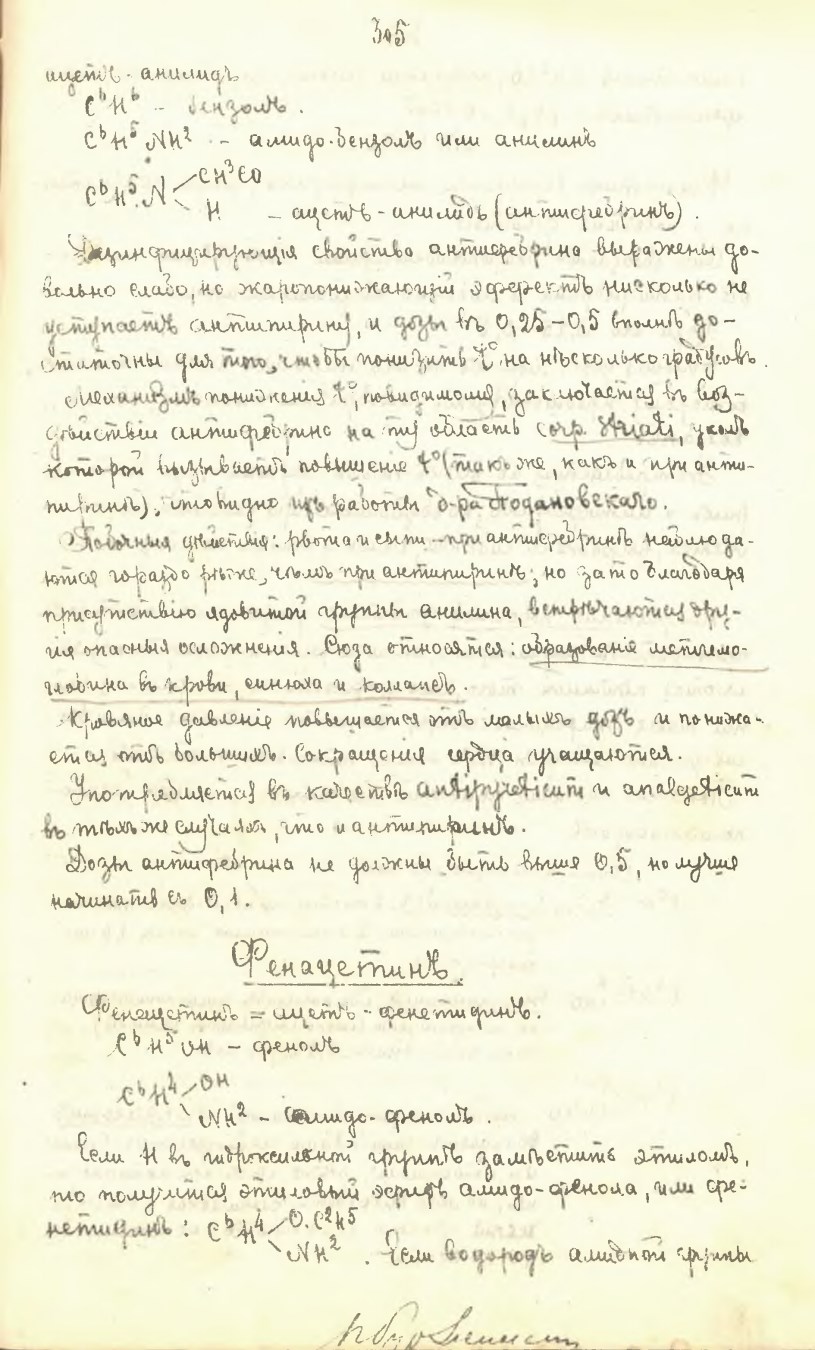 305
ацетъ-анилидъ
C⁶H⁶ - бензолъ.
C⁶H⁵NH² - амидо-бензолъ или анилинъ
C⁶H⁵.N CH³CO
H - ацетъ-анилидъ (антифебринъ).
Дезинфицирующія свойства антифебрина выражены до-
вольно слабо, но жаропонижающій эффектъ нисколько не
уступаетъ антипирину, и дозы въ 0,25-0,5 вполнѣ до-
статочны для того, чтобы понизить t° на нѣсколько градусовъ.
Механизмъ пониженія t°, повидимому, заключается въ воз-
дѣйствіи антифебрина на ту область corp. striati, уколъ
которой вызываетъ повышеніе t° (также, какъ и при анти-
пиринѣ), что видно изъ работы д-ра
Побочныя дѣйствія: рвота и сыпи - при антифебринѣ наблюда-
ются гораздо рѣже, чѣмъ при антипиринѣ; но зато благодаря
присутствію ядовитой группы анилина, встрѣчаются дру-
гія опасныя осложненія. Сюда относятся: образованіе метгемо-
глобина въ крови, синюха и колапсъ.
Кровяное давленіе повышается отъ малыхъ дозъ и понижа-
ется отъ большихъ. Сокращенія сердца учащаются.
Употребляется въ качествѣ antipyreticum и analgeticum
въ тѣхъ же случаяхъ, что и антипиринъ.
Дозы антифебрина не должны быть выше 0,5, но лучше
начинать съ 0,1.
Фенацетинъ.
Фенацетинъ = ацетъ-фенетидинъ.
C⁶H⁵OH - фенолъ
C⁶H⁴ OH
NH² - амидо-фенолъ.
Если H въ гидроксильной группѣ замѣстить этиломъ,
то получится этиловый эфиръ амидо-фенола, или фе-
нетидинъ: C⁶H⁴ O.C²H⁵
NH². Если водородъ амидной группы